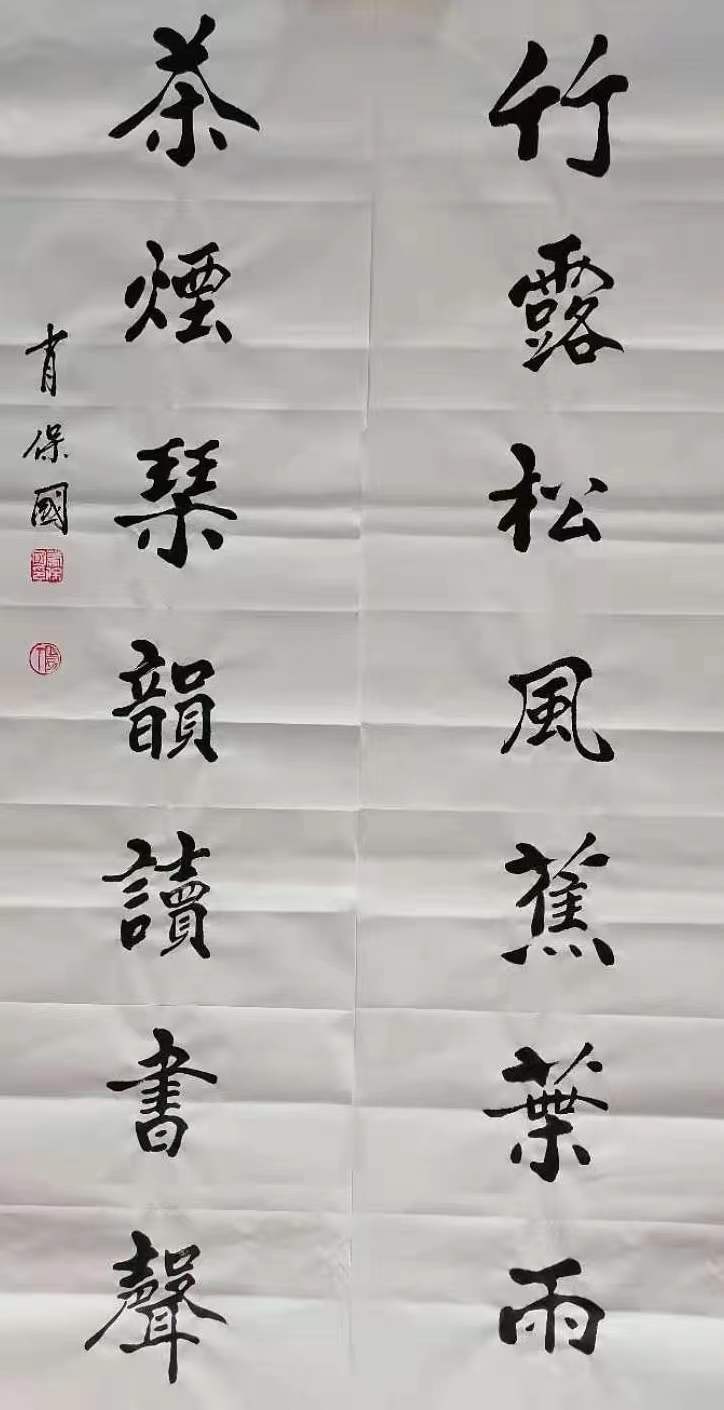 竹露松風蕉葉雨
茶煙琹韻讀書聲
肖保國